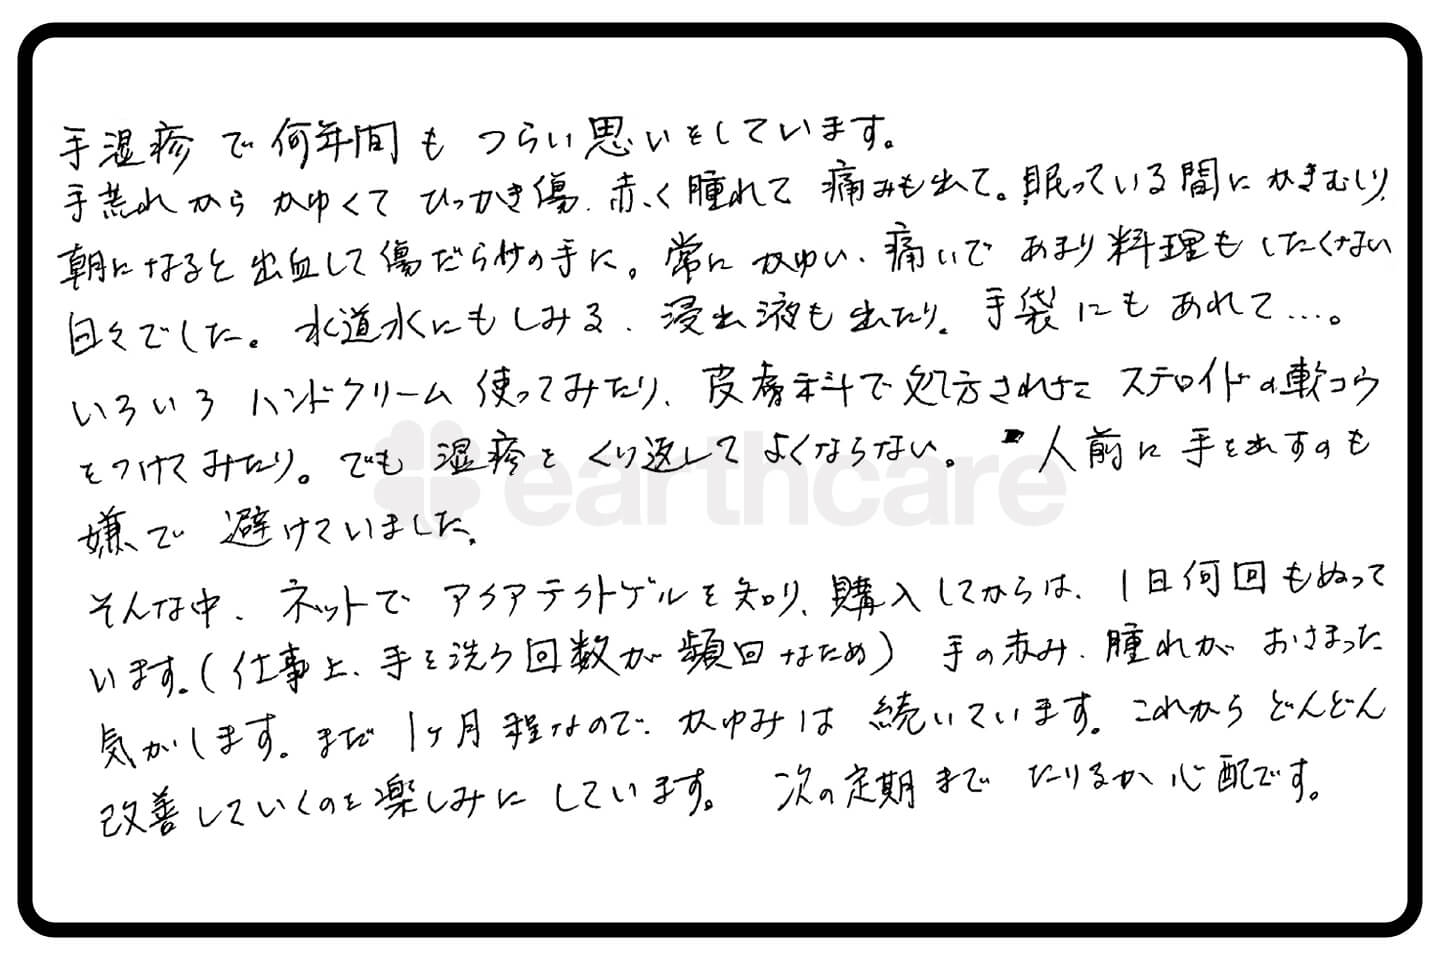 手湿疹で何年間もつらい思いをしています。
手荒れからかゆくてひっかき傷、赤く腫れて痛みも出て。眠っている間にかきむしり、
朝になると出血して傷だらけの手に。常にかゆい、痛いであまり料理もしたくない
日々でした。水道水にもしみる、浸出液も出たり。手袋にもあれて…。
いろいろハンドクリーム使ってみたり、皮膚科で処方されたステロイドの軟コウ
をつけてみたり。でも湿疹をくり返してよくならない。人前に手を出すのも
嫌で避けていました。
そんな中、ネットでアクアテクトゲルを知り、購入してからは、1日何回もぬって
います。(仕事上、手を洗う回数が頻回なため)手の赤み、腫れがおさまった
気がします。まだ1ヶ月程なので、かゆみは続いています。これからどんどん
改善していくのを楽しみにしています。次の定期までたりるか心配です。
earthcare